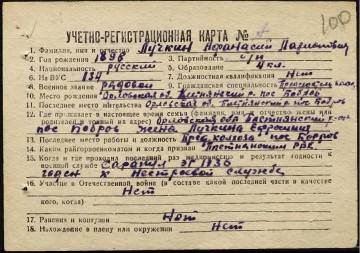 100
УЧЕТНО-РЕГИСТРАЦИОННАЯ КАРТА №
1. Фамилия, имя и отчество Лучкин Афанасий
2. Год рождения 1898 3. Партийность б/п
4. Национальность русский 5. Образование 4 кл.
6. № ВУС 134 7. Должностная квалификация Нет
8. Военное звание рядовой 9. Гражданская специальность
10. Место рождения Орловская об. пос Бобров
11. Последнее место жительства Орловская об. пос Бобров
12. Где проживает в настоящее время семья (фамилия, имя и отчество жены или
родителей и точный их адрес) Орловская обл
пос Бобров жена Лучкина
13. Последнее место работы и должность колхоза пос Бобров
14. Каким райгорвоенкоматом и когда призван РВК
15. Когда и где проходил последний раз медкомиссию и результат годности к
военной службе
годен к нестроевой службе
16. Участие в Отечественной войне (в составе какой последней части и в качестве
кого, когда) Нет
17. Ранения и контузии Нет
18. Нахождение в плену или окружении Нет